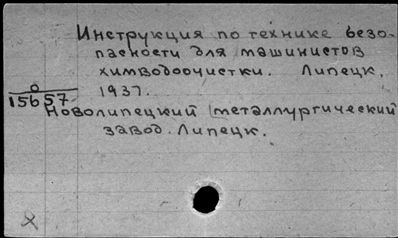 Инструкция по технике безо-
пасности для машинистов
химводоочистки. Липецк,
1937.
О
15657
Новолипецкий металлургический
завод. Липецк.